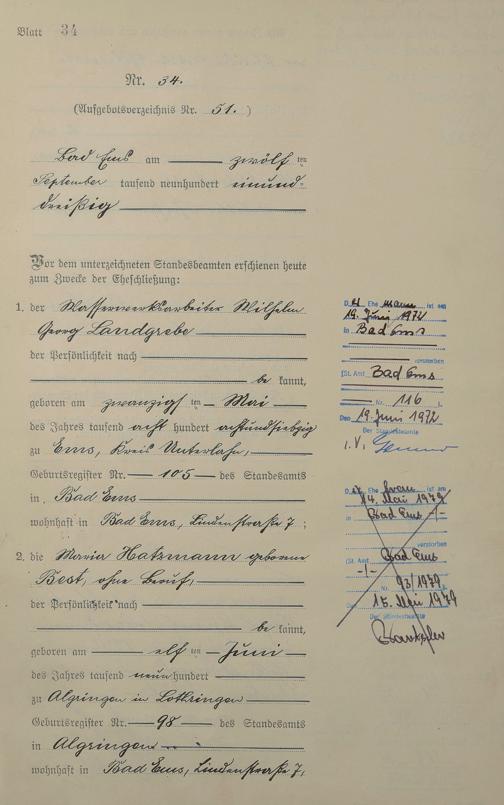 Blatt 34
Nr. 34.
(Aufgebotsverzeichnis Nr. 51.)
Bad Ems am zwölf ten
September tausend neunhundert einund-
dreißig
Vor dem unterzeichneten Standesbeamten erschienen heute
zum Zwecke der Eheschließung:
1. der Wasserwerksarbeiter Wilhelm
Georg Landgrebe
der Persönlichkeit nach
be kannt,
geboren am zwanzigs ten Mai
des Jahres tausend acht hundert achtundsiebzig
zu Ems, Kreis Unterlahn,
Geburtsregister Nr. 105 des Standesamts
in, Bad Ems
wohnhaft in Bad Ems, Lindenstraße 7;
2. die Maria Hatzmann geborene
Best, ohne Beruf,
der Persönlichkeit nach
be kannt,
geboren am elf ten Juni
des Jahres tausend neunhundert
zu Algringen in Lothringen
Geburtsregister Nr. 98 des Standesamts
in Algringen
wohnhaft in Bad Ems, Lindenstraße 7,
Der Ehe mann ist am
19. Juni 1972
in Bad Ems
verstorben
(St. Amt Bad Ems
Nr. 116
Den 19. Juni 1972
Der Standesbeamte
i.V.
Die Ehe frau ist am
14. Mai 1979
in Bad Ems -/-
verstorben
(St. Amt Bad Ems
-/-
Nr. 93/1979
Den 15. Mai 1979
Der Standesbeamte